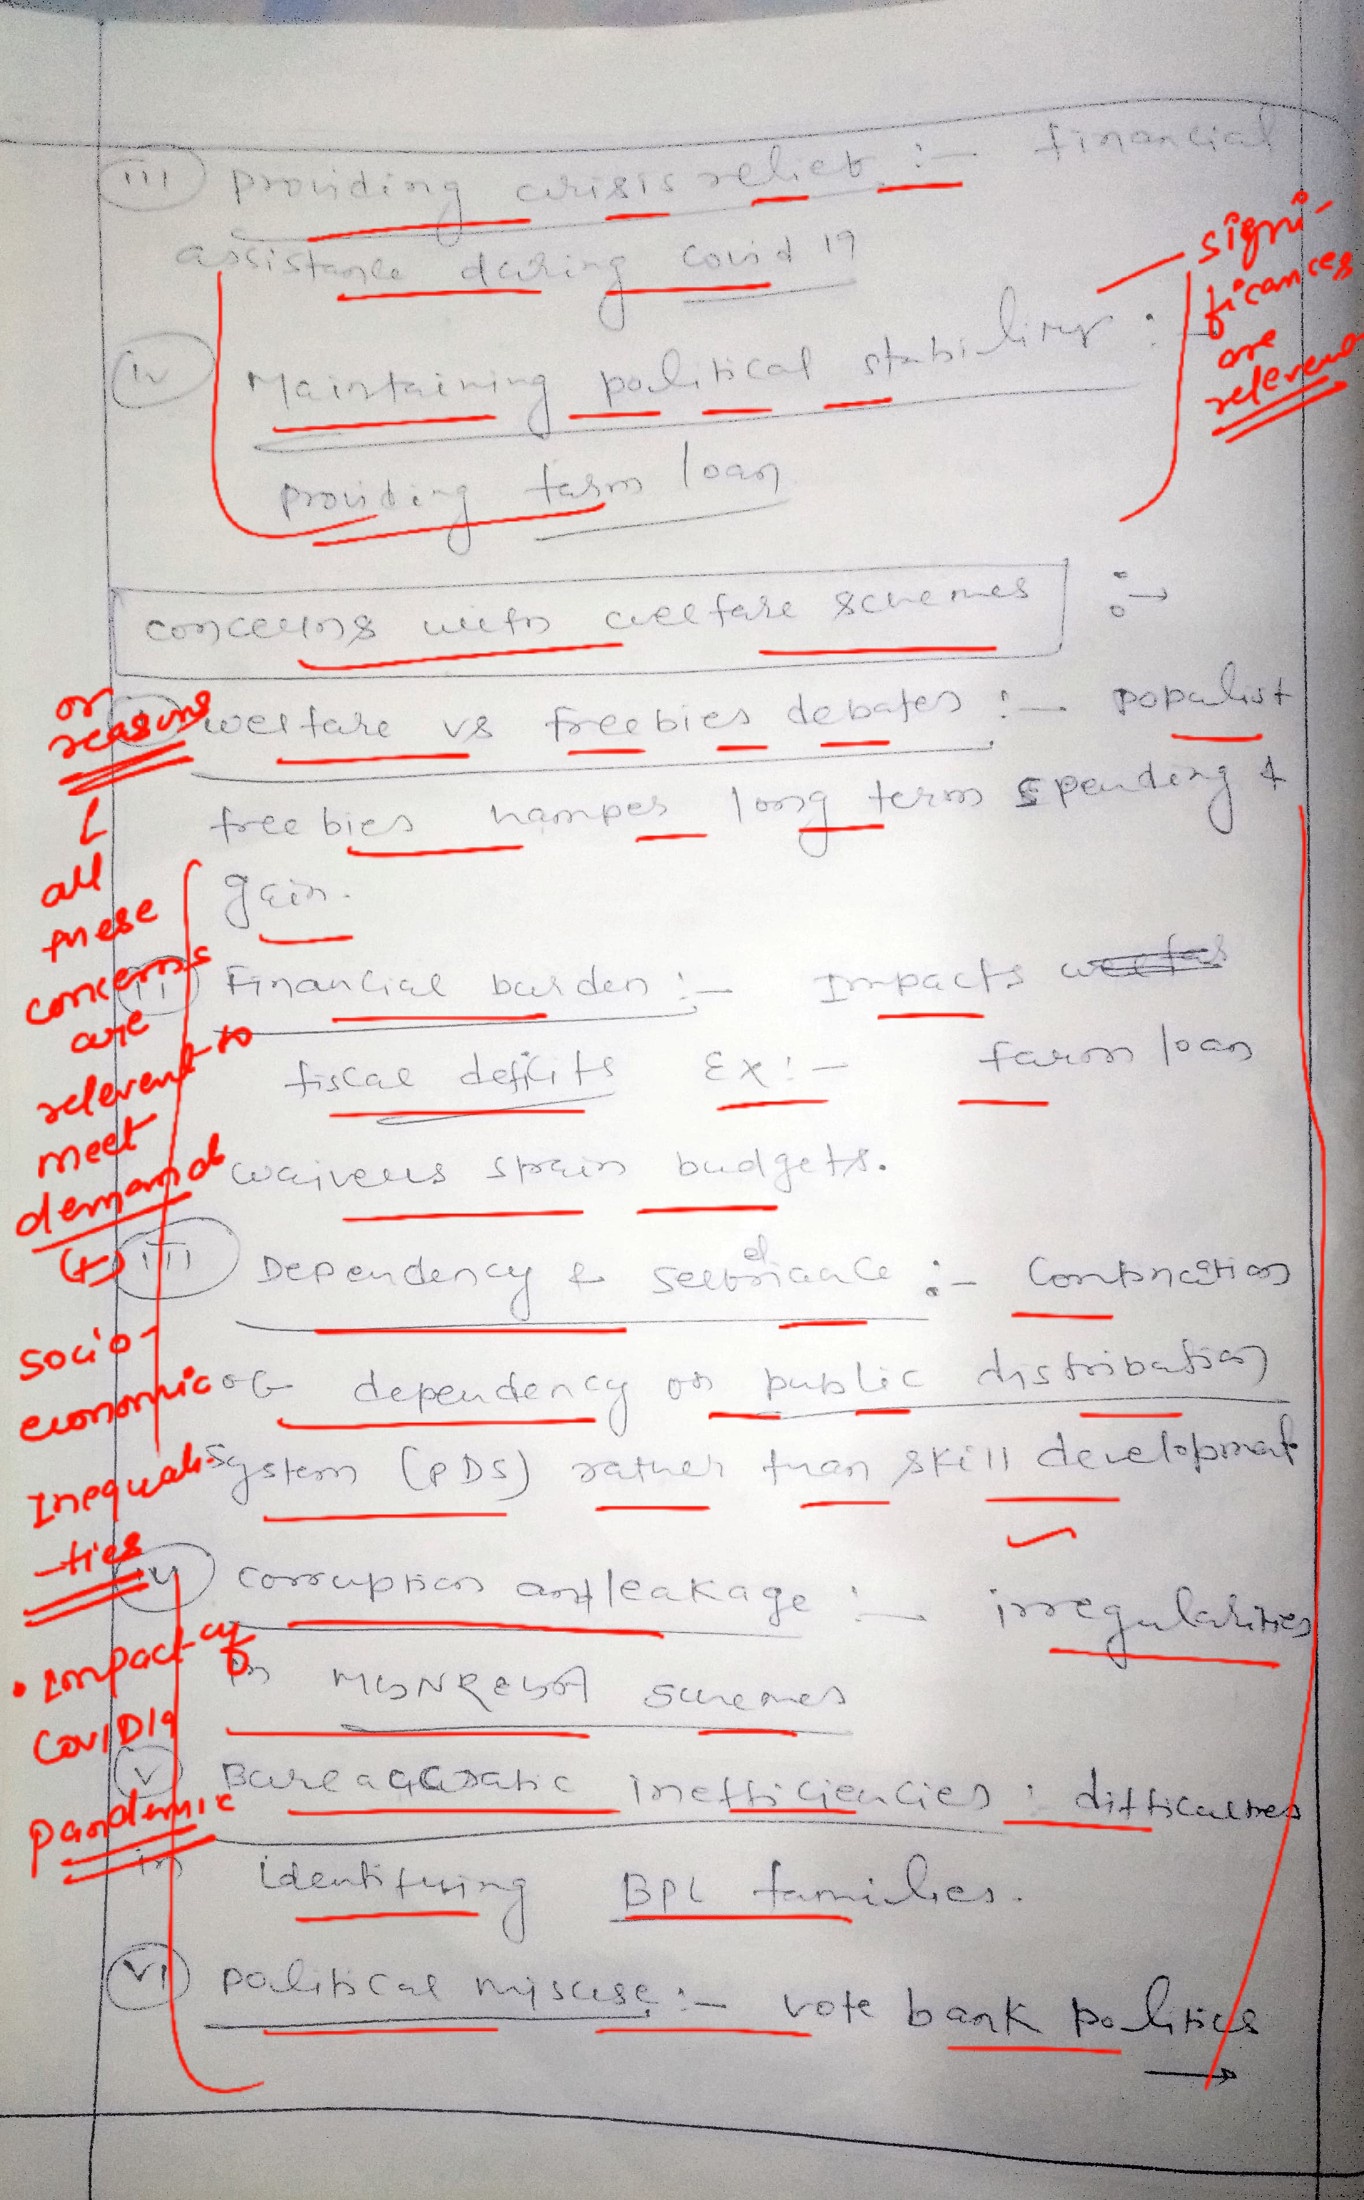 (iii) providing crisis relief :- financial
assistance during covid 19
(iv) Maintaining political stability :-
providing farm loan
signi-
ficances
are
relevent
concerns with welfare schemes :→
or
reasons
(i) welfare vs freebies debates :- populist
freebies hampes long term spending &
gain.
all
these
concerns
are
relevent to
meet
demands
(+)
socio-
economic
Inequali-
-ties
• impact of
COVID19
pandemic
(ii) Financial burden :- Impacts
fiscal deficits Ex :- farm loan
waivers strain budgets.
(iii) Dependency & selfreliance :- Combination
of dependency on public distribution
system (PDS) rather than skill development
(iv) corruption and leakage :- irregularities
in MGNREGA schemes
(v) Bureaucratic inefficiencies : difficulties
in identifying BPL families.
(vi) political misuse :- vote bank politics
→